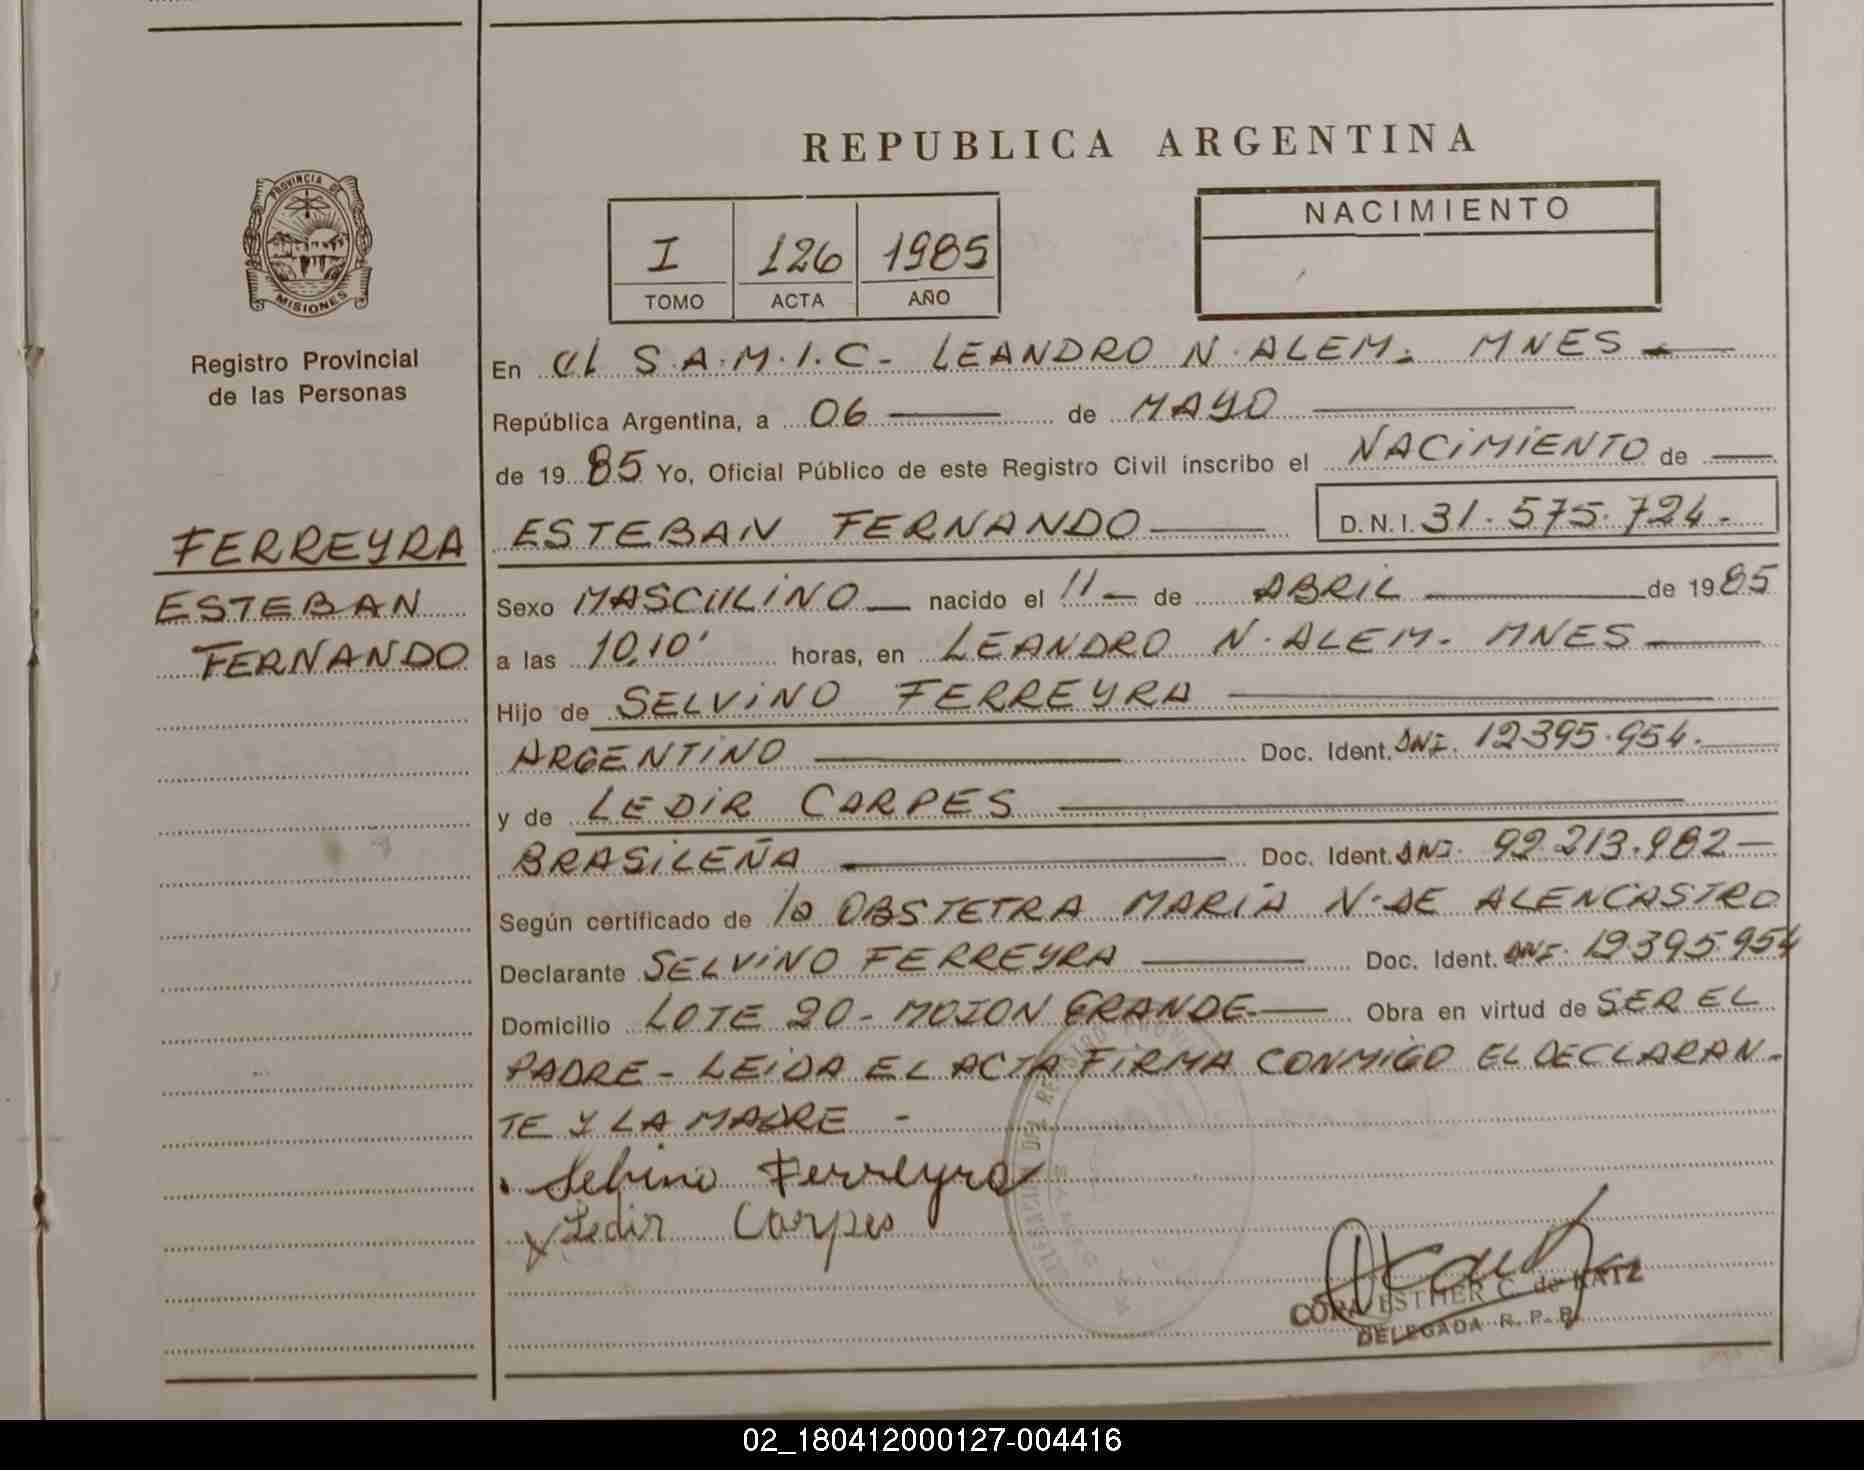 REPUBLICA ARGENTINA
PROVINCIA DE
MISIONES
Registro Provincial
de las Personas
I 126 1985
TOMO ACTA AÑO
NACIMIENTO
En el S.A.M.I.C- LEANDRO N. ALEM. MNES
República Argentina, a 06 de MAYO
de 1985 Yo, Oficial Público de este Registro Civil inscribo el NACIMIENTO de
FERREYRA
ESTEBAN
FERNANDO
ESTEBAN FERNANDO D.N.I. 31.575.724.
Sexo MASCULINO nacido el 11 de ABRIL de 1985
a las 10,10' horas, en LEANDRO N. ALEM. MNES
Hijo de SELVINO FERREYRA
ARGENTINO Doc. Ident. DNI. 12395.954.
y de LEDIR CARPES
BRASILEÑA Doc. Ident. DNI. 92.213.982
Según certificado de la OBSTETRA MARIA N. DE ALENCASTRO
Declarante SELVINO FERREYRA Doc. Ident. DNI. 12395954
Domicilio LOTE 20- MOJON GRANDE Obra en virtud de SER EL
PADRE- LEIDA EL ACTA FIRMA CONMIGO EL DECLARAN-
TE Y LA MADRE -
Selvino Ferreyra
Ledir Carpes
ESTHER C. de KATZ
DELEGADA R. P. P.
02_180412000127-004416